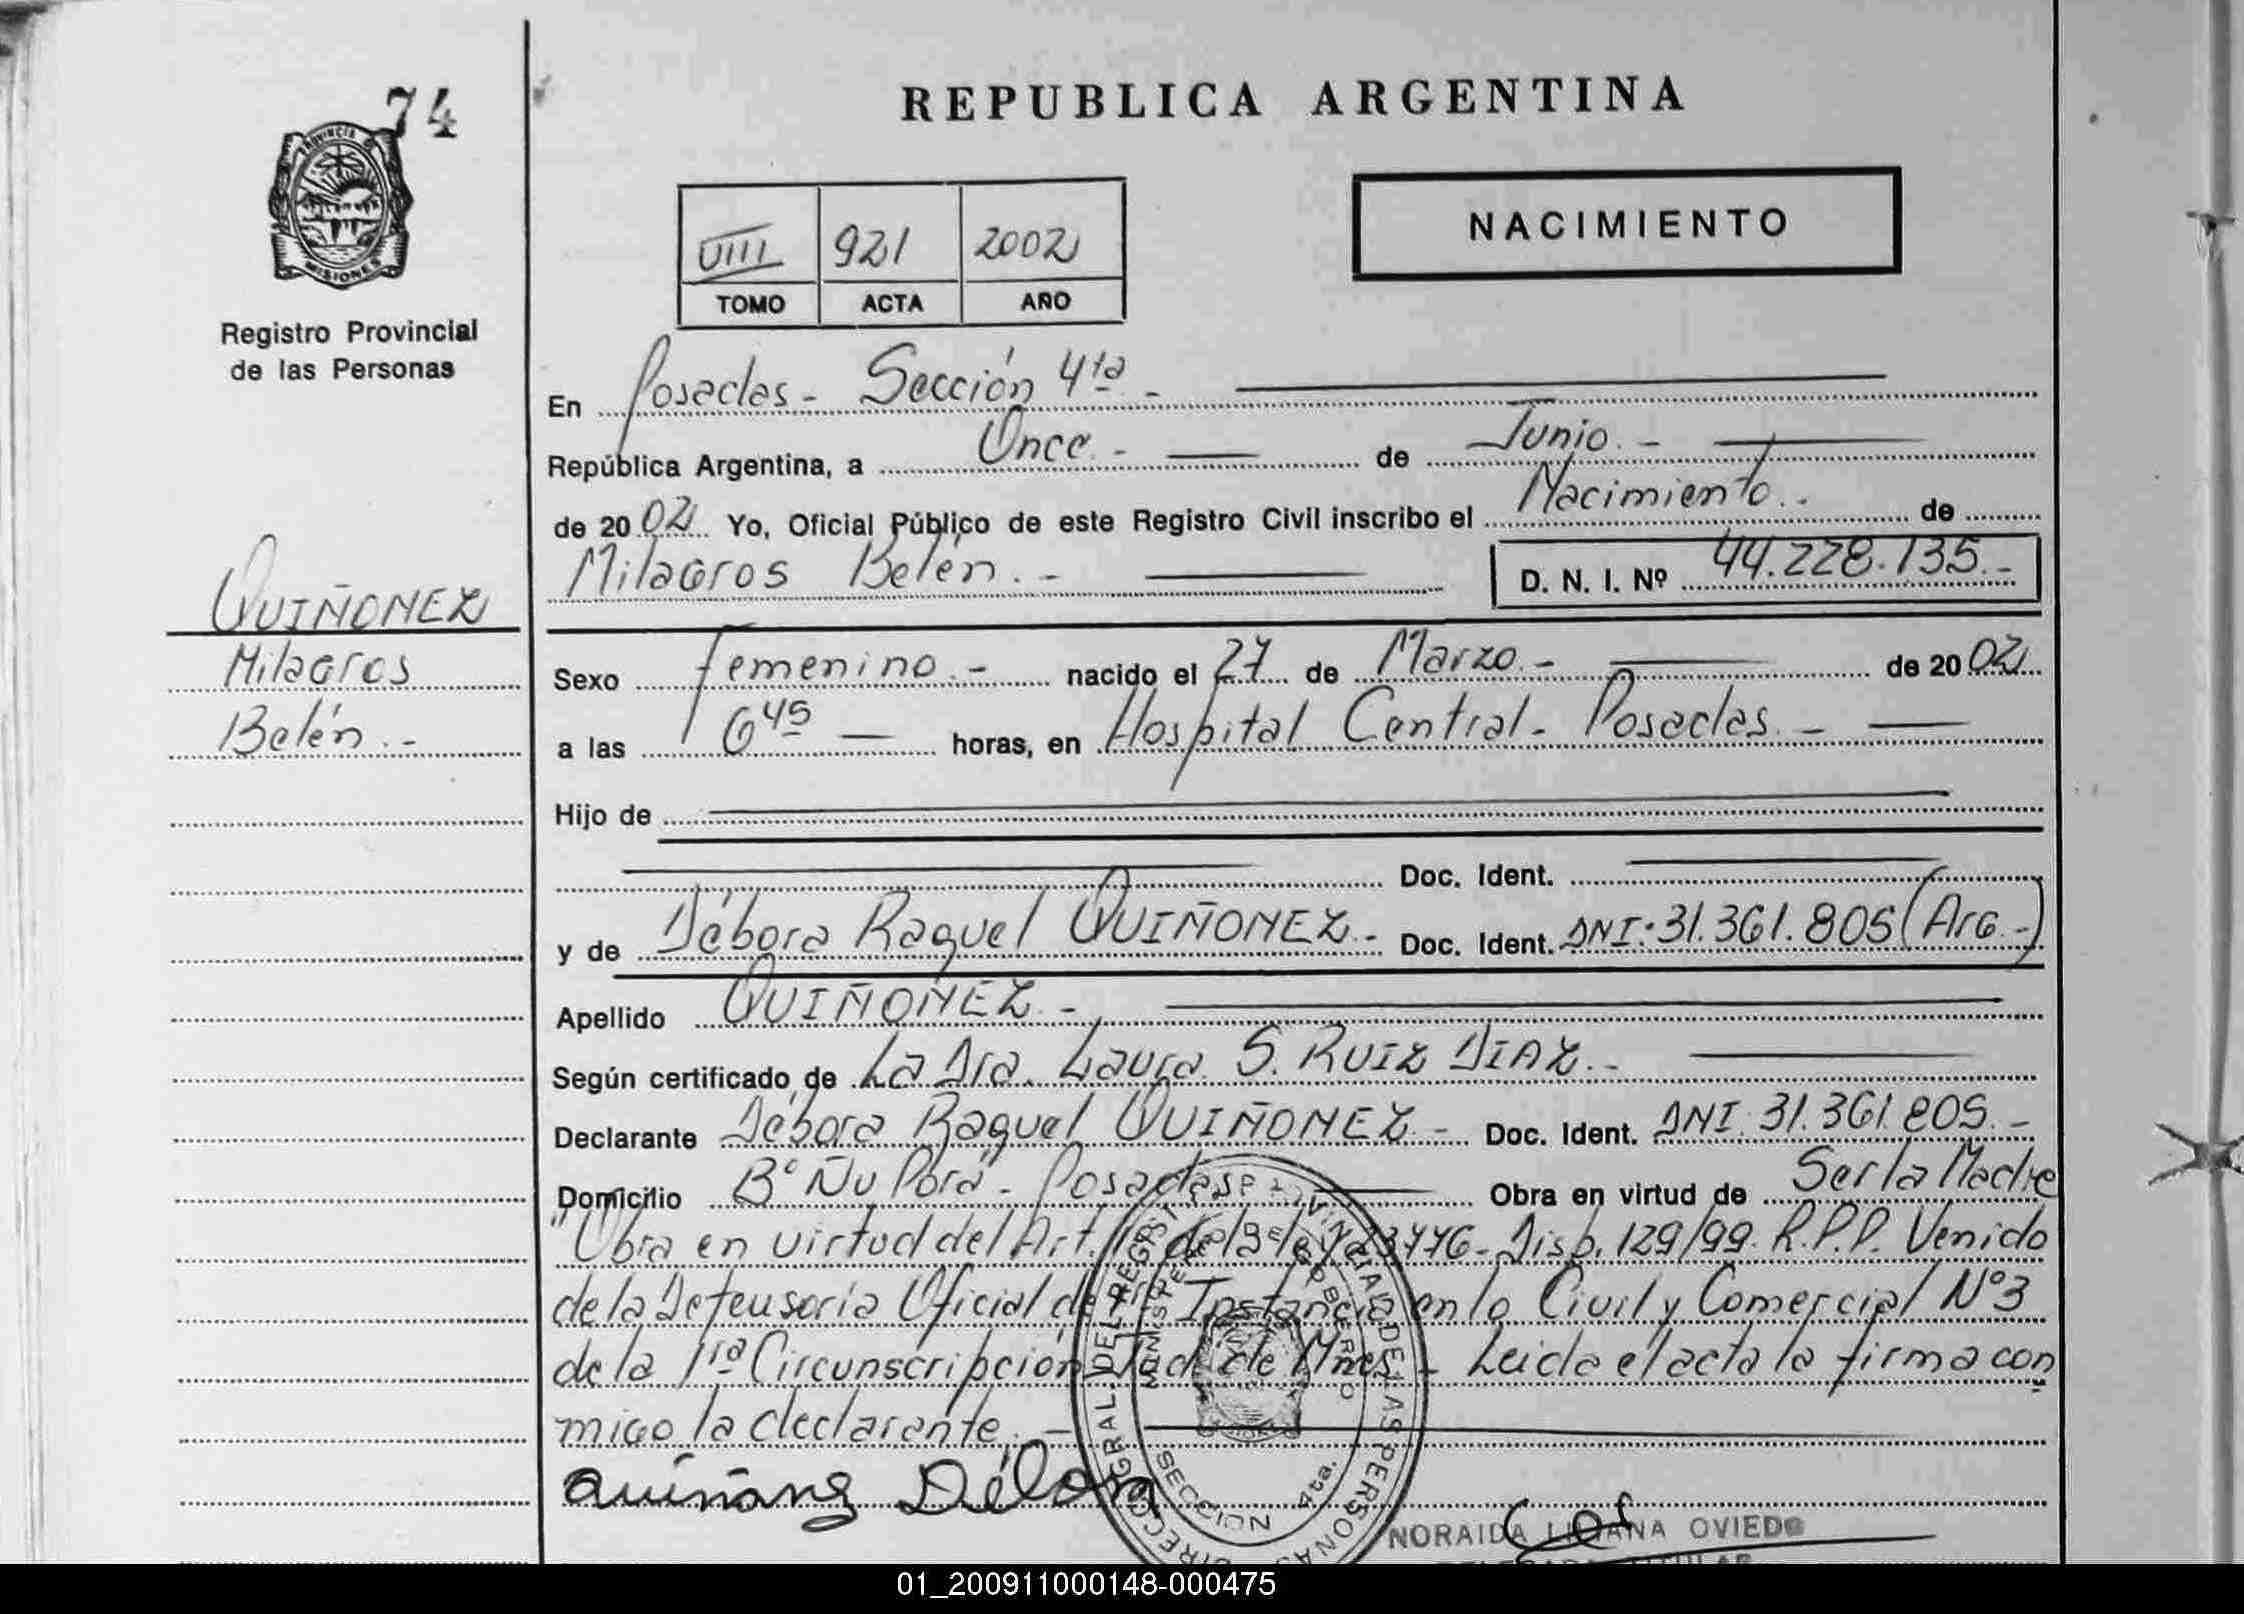 74
PROVINCIA
MISIONES
Registro Provincial
de las Personas
QUIÑONEZ
Milagros
Belén.-
REPUBLICA ARGENTINA
NACIMIENTO
VIII 921 2002
TOMO ACTA AÑO
En Posadas- Sección 4ta.-
República Argentina, a Once.- de Junio.-
de 2002 Yo, Oficial Público de este Registro Civil inscribo el Nacimiento.. de
Milagros Belén.- D. N. I. Nº 44.228.135.-
Sexo femenino.- nacido el 27 de Marzo.- de 2002
a las 6 45 horas, en Hospital Central- Posadas.-
Hijo de
Doc. Ident.
y de Débora Raquel QUIÑONEZ.- Doc. Ident. DNI: 31.361.805 (Arg.-)
Apellido QUIÑONEZ.-
Según certificado de La Dra. Laura S. RUIZ DIAZ.-
Declarante Débora Raquel QUIÑONEZ.- Doc. Ident. DNI. 31.361.805.-
Domicilio Bº Ñu Porá- Posadas Obra en virtud de Ser la Madre
"Obra en virtud del Art. de la ley 23776- Disp. 129/99. R.P.P. Venido
de la Defensoria Oficial de 1ra Instancia en lo Civil y Comercial Nº3
de la 1ra Circunscripción Jud. de Mnes.- Leida el acta la firma con
migo la declarante.-
Quiñonez Débora
SECCION 4ta.
NORAIDA LILIANA OVIEDO
01_200911000148-000475